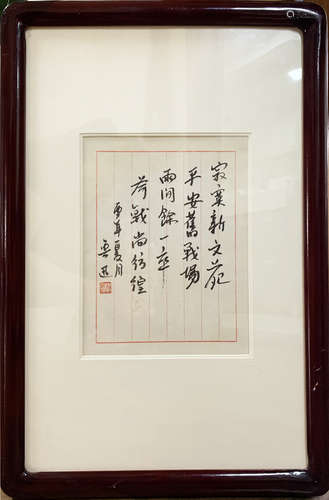 寂寞新文苑
平安舊戰場
兩間餘一卒
荷戟尚彷徨
酉年夏月
魯迅